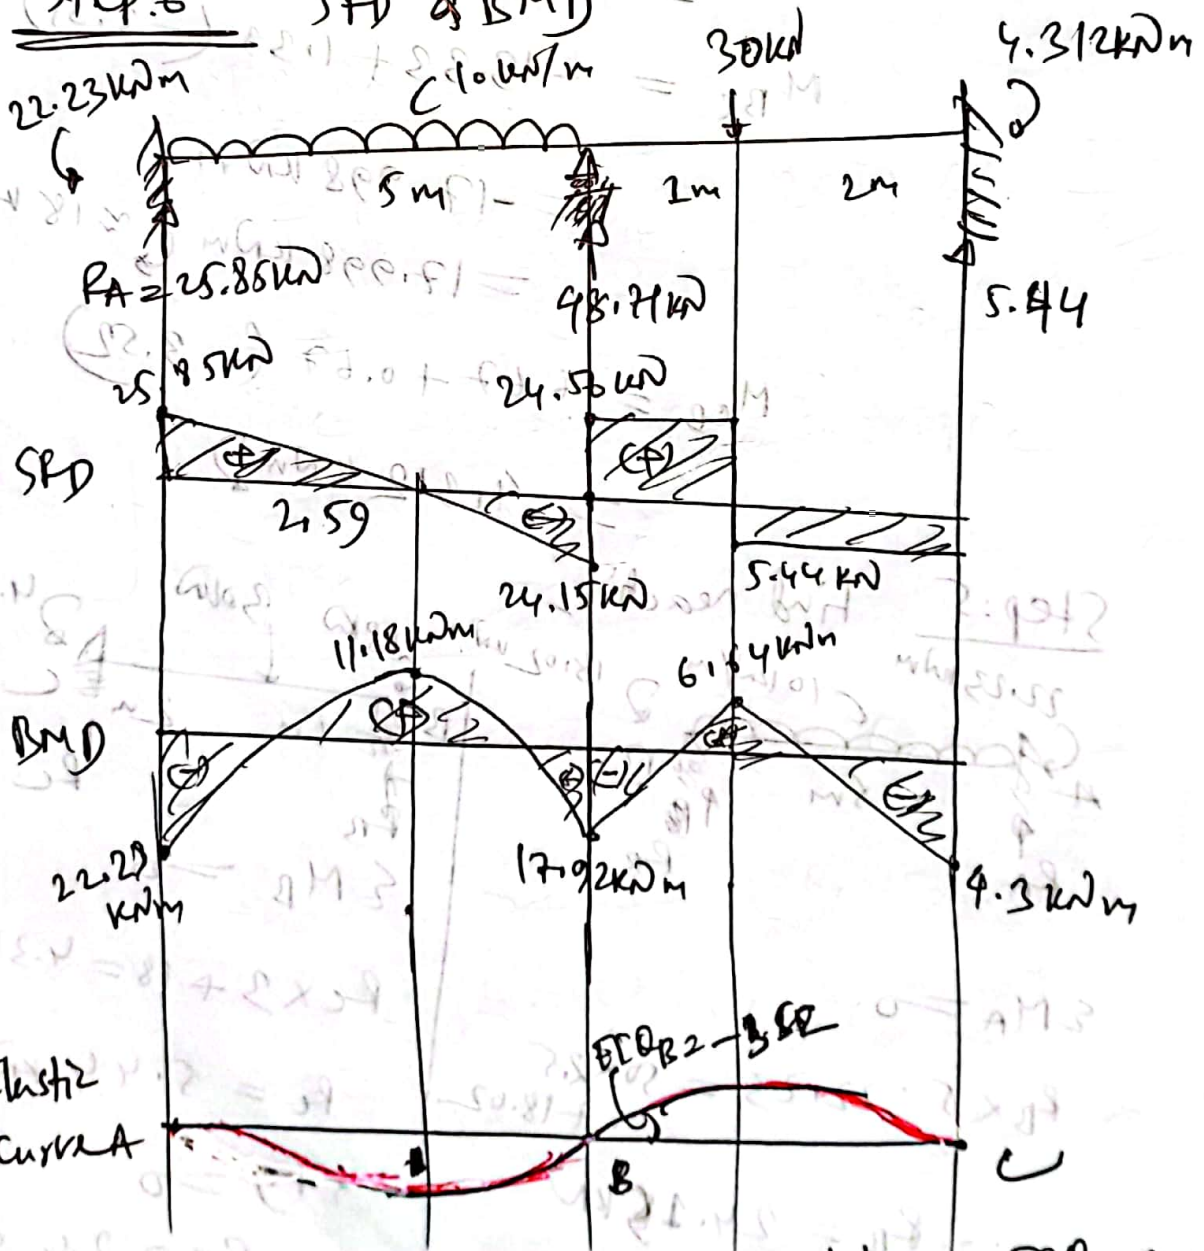 Step: 6 SFD & BMD
22.23kNm
10kN/m
30kN
4.312kNm
5m
1m
2m
RA = 25.85kN
48.71kN
5.44
25.85kN
24.56kN
SFD
(+)
(+)
2.59
(-)
24.15kN
5.44kN
11.18kNm
6.64kNm
BMD
(+)
(-)
(-)
(-)
22.23
kNm
17.92kNm
4.3kNm
Elastic
Curve A
B
C